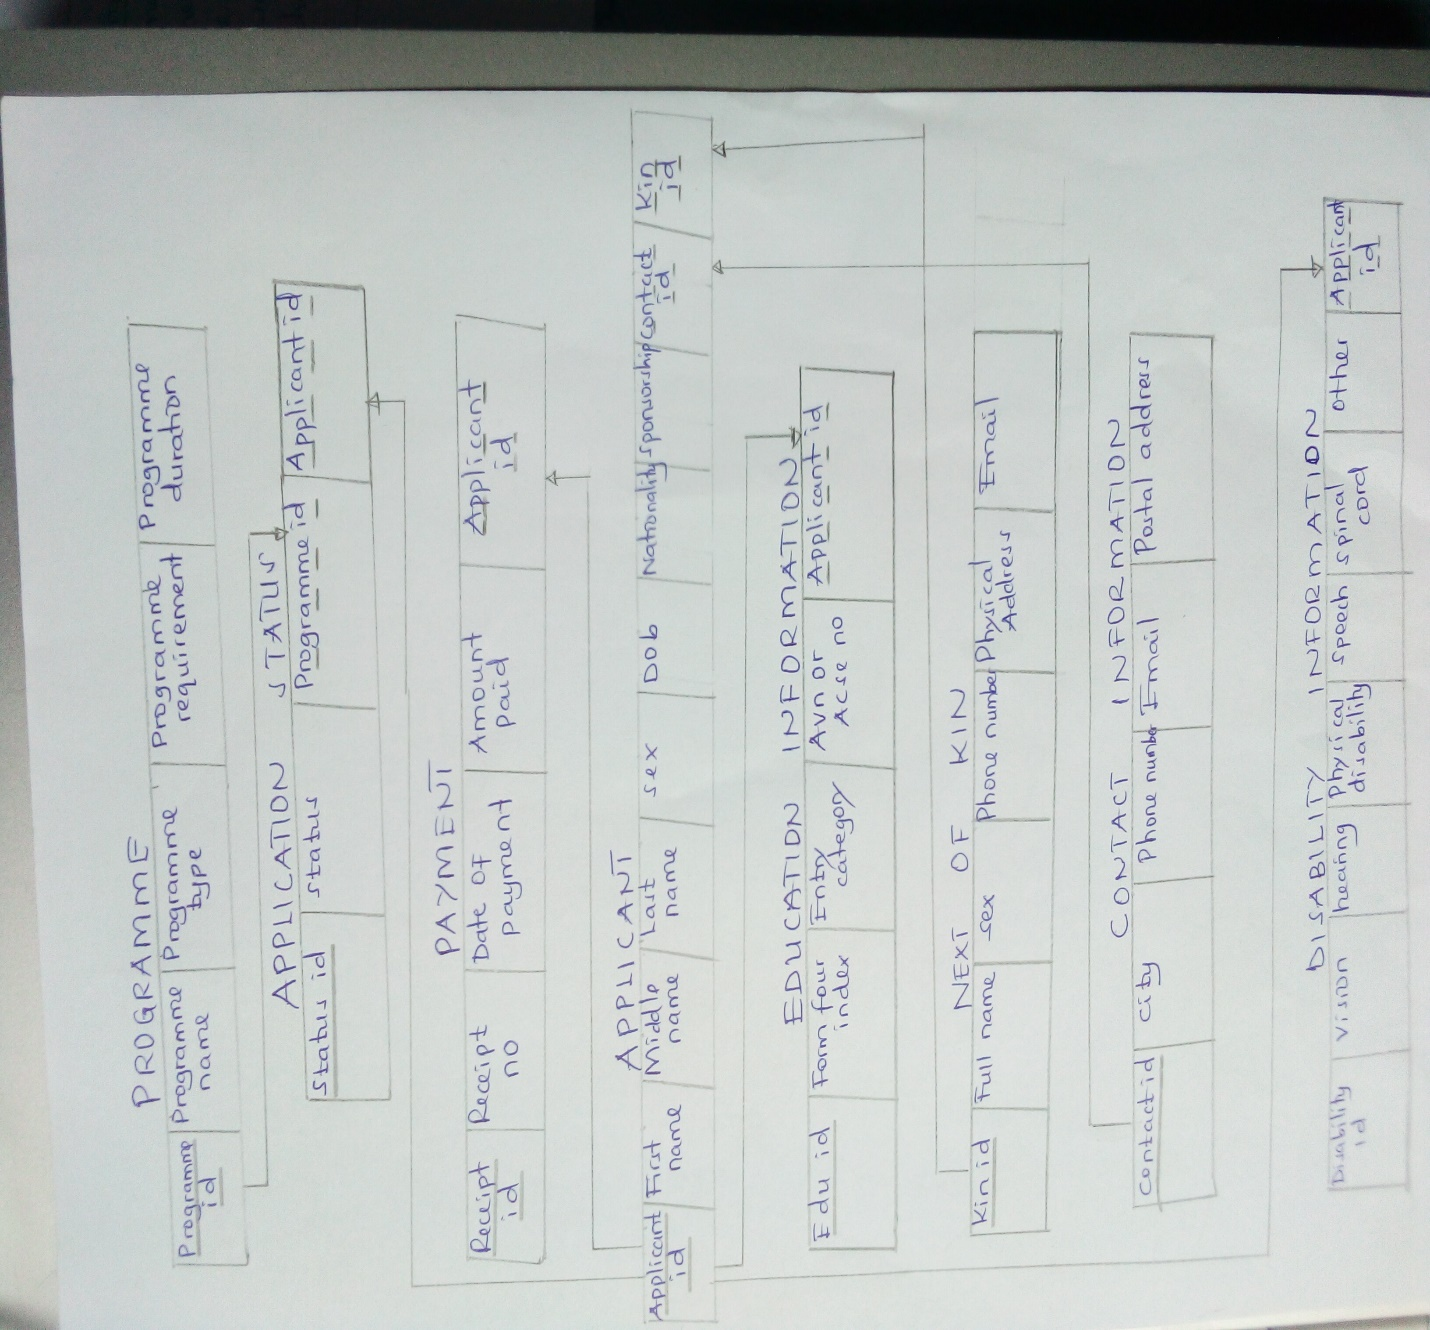 PROGRAMME
Programme id
Programme name
Programme type
Programme requirement
Programme duration
APPLICATION STATUS
Status id
status
Programme id
Applicant id
PAYMENT
Receipt id
Receipt no
Date of payment
Amount paid
Applicant id
APPLICANT
Applicant id
First name
Middle name
Last name
sex
Dob
Nationality
sponsorship
contact id
Kin id
EDUCATION INFORMATION
Edu id
Form four index
Entry category
Avn or Acse no
Applicant id
NEXT OF KIN
Kin id
Full name
sex
Phone number
Physical Address
Email
CONTACT INFORMATION
contact id
city
Phone number
Email
Postal address
DISABILITY INFORMATION
Disability id
Vision
hearing
Physical disability
speech
spinal cord
other
Applicant id